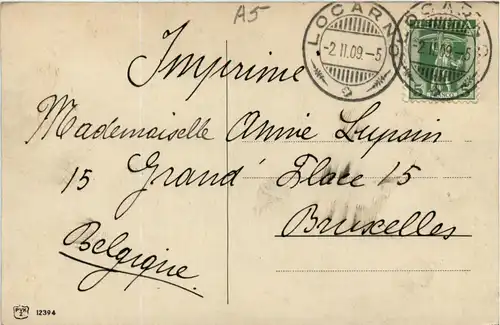 A5
LOCARNO
-2 II.09.-5
LOCARNO
-2 II.09.-5
HELVETIA
5 5
Imprimé
Mademoiselle Annie Lupsin
15 Grand' Place 15
Bruxelles
Belgique
12394